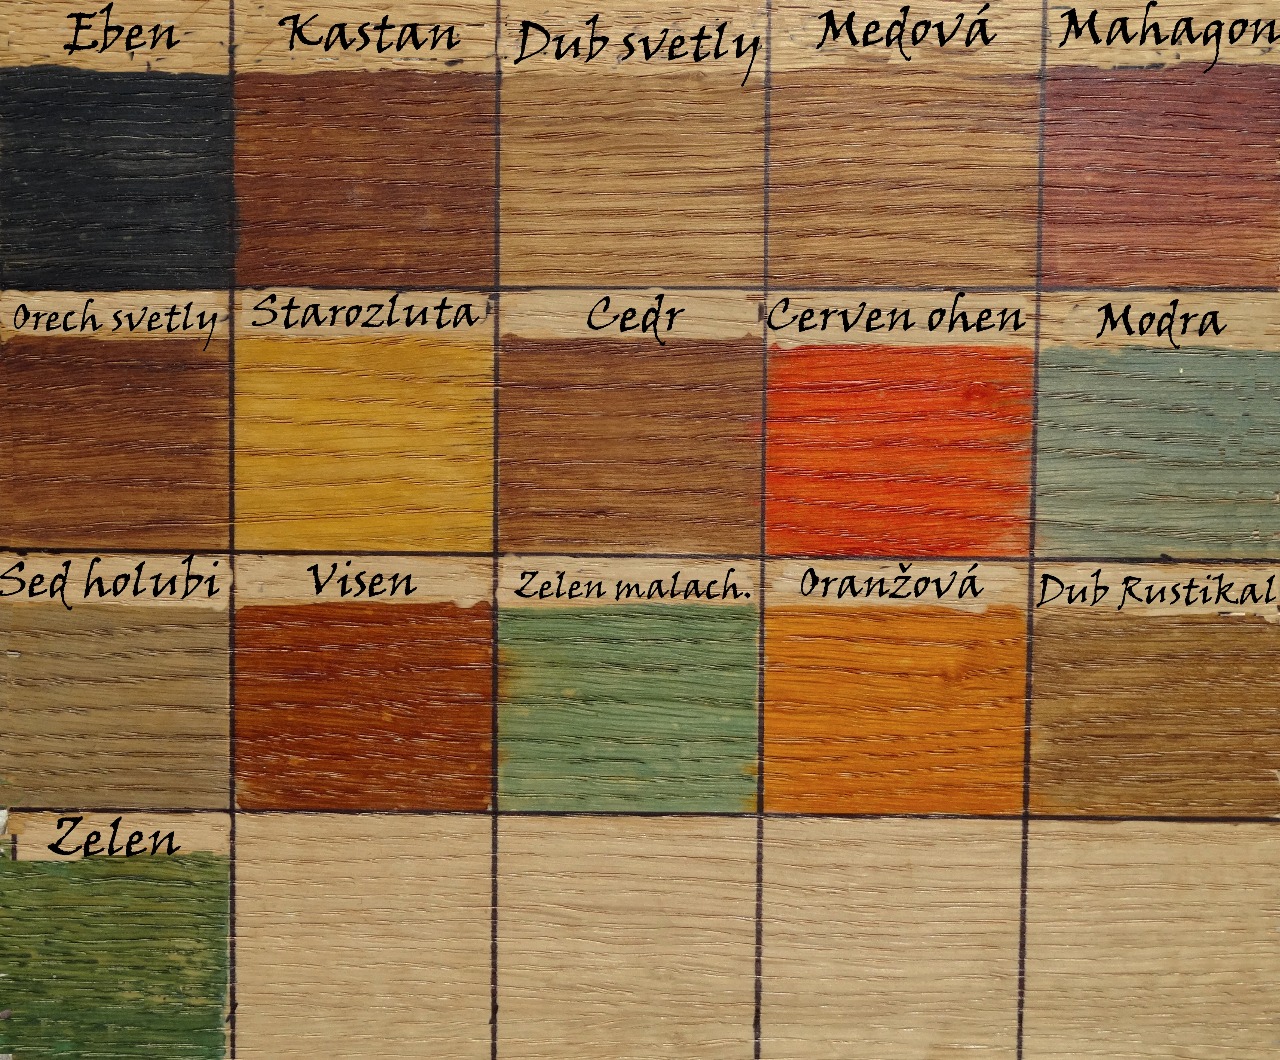 Eben
Kastan
Dub svetly
Medová
Mahagon
Orech svetly
Starozluta
Cedr
Cerven ohen
Modra
Sed holubi
Visen
Zelen malach.
Oranžová
Dub Rustikal
Zelen